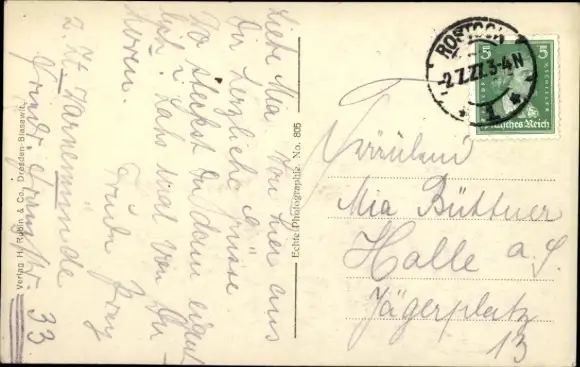 Liebe Mia Von hier aus
Dir herzliche Grüsse
Wo steckst Du denn eigent
lich? Lass mal von Dir
hören.
Trude
z. Zt. Warnemünde
33
Verlag H. Rubin & Co., Dresden-Blasewitz
Echte Photographie No. 805
ROSTOCK
-2.7.27.3-4N
* 1 *
5 5
Deutsches Reich
Fräulein
Mia Büttner
Halle a. S.
Jägerplatz
13